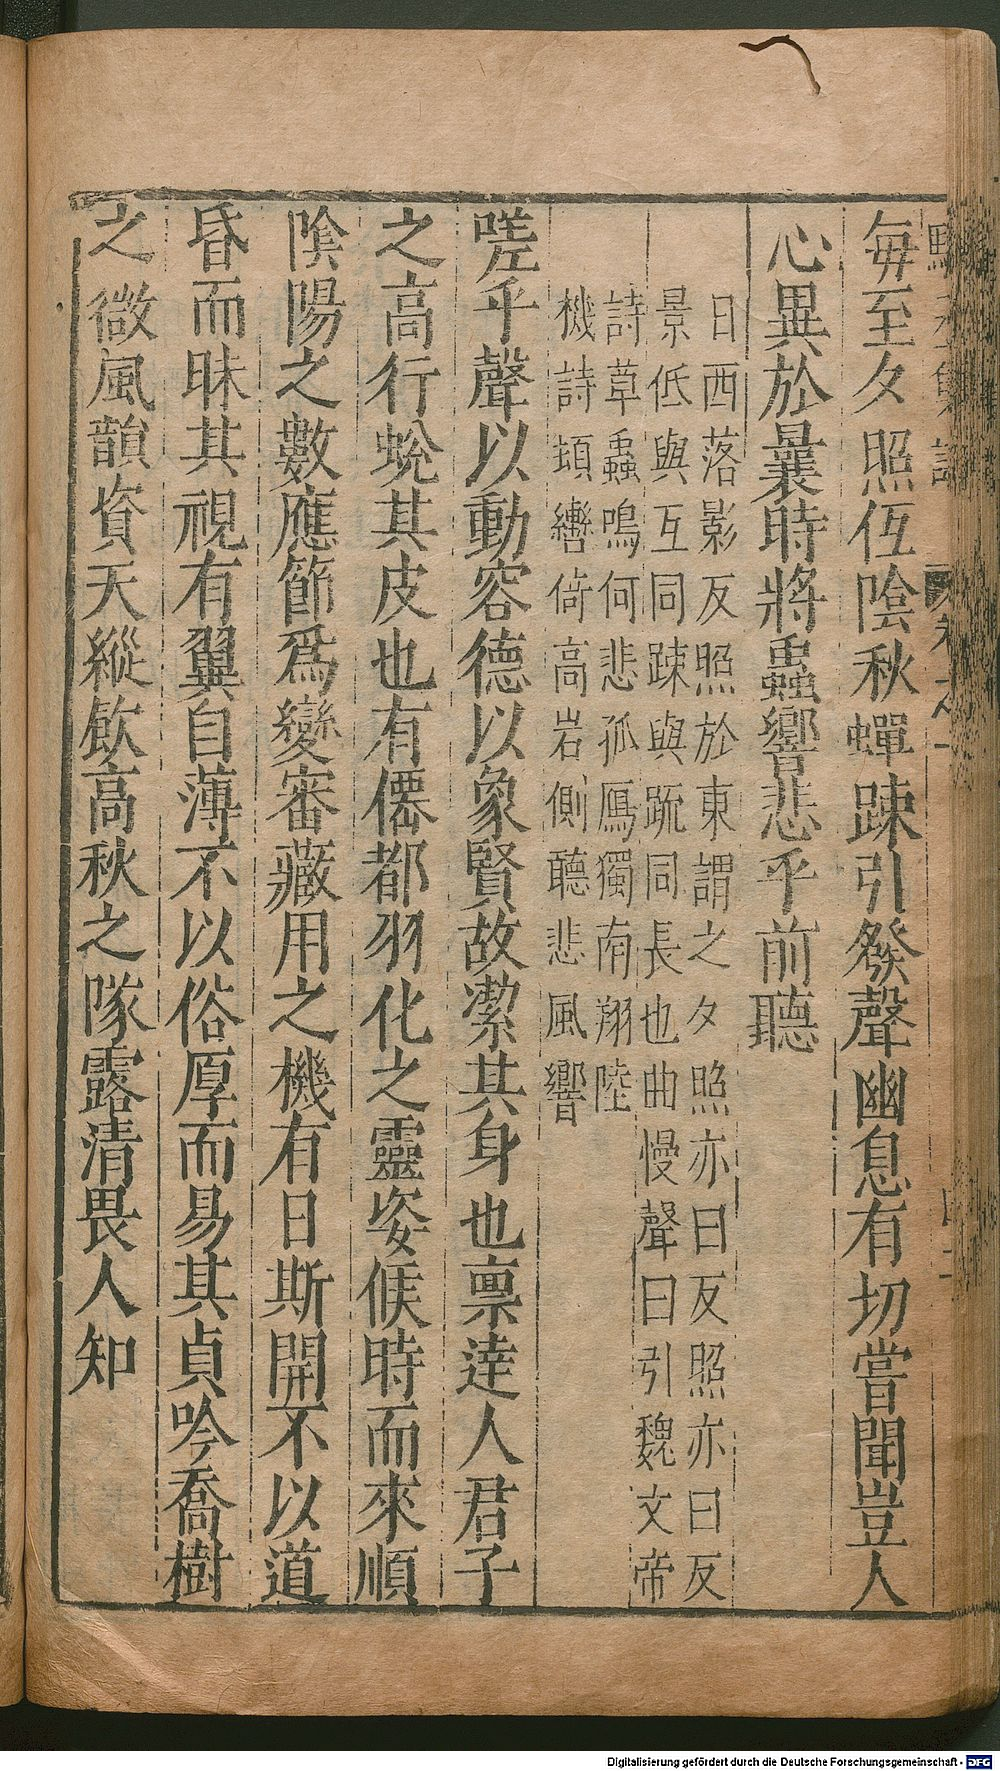 每至夕照㐲陰秋蟬踈引發聲幽息有切嘗聞豈人
心異於曩時將蟲響悲乎前聽
日西落影反照於東謂之夕照亦曰反照亦曰反
景低與互同踈與疏同長也曲慢聲曰引魏文帝
詩草蟲鳴何悲孤鴈獨南翔陸
機詩頓轡倚高岩側聽悲風響
嗟乎聲以動容德以象賢故潔其身也禀達人君子
之高行蛻其皮也有僊都羽化之靈姿候時而來順
陰陽之數應節爲變審藏用之機有目斯開不以道
昏而昧其視有翼自薄不以俗厚而易其貞吟喬樹
之微風韻資天縱飲高秋之隊露清畏人知
Digitalisierung gefördert durch die Deutsche Forschungsgemeinschaft - DFG